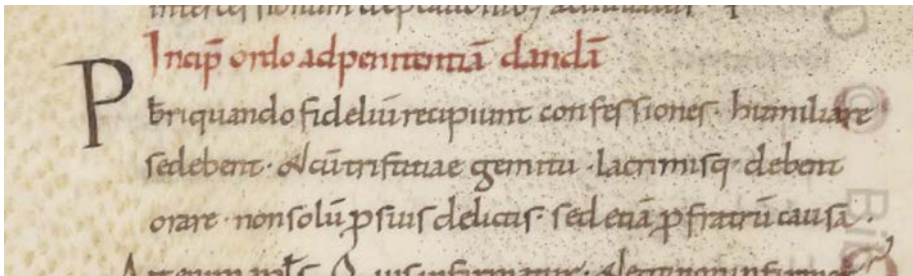 Incip̄ ordo ad penitentiā dandā
Pbr̄i quando fideliū recipiunt confessiones · humiliare
se debent · & cū tristitiae gemitu · lacrimisq· debent
orare · non solū p suis delictis· sed etiā p fratrū causā ·